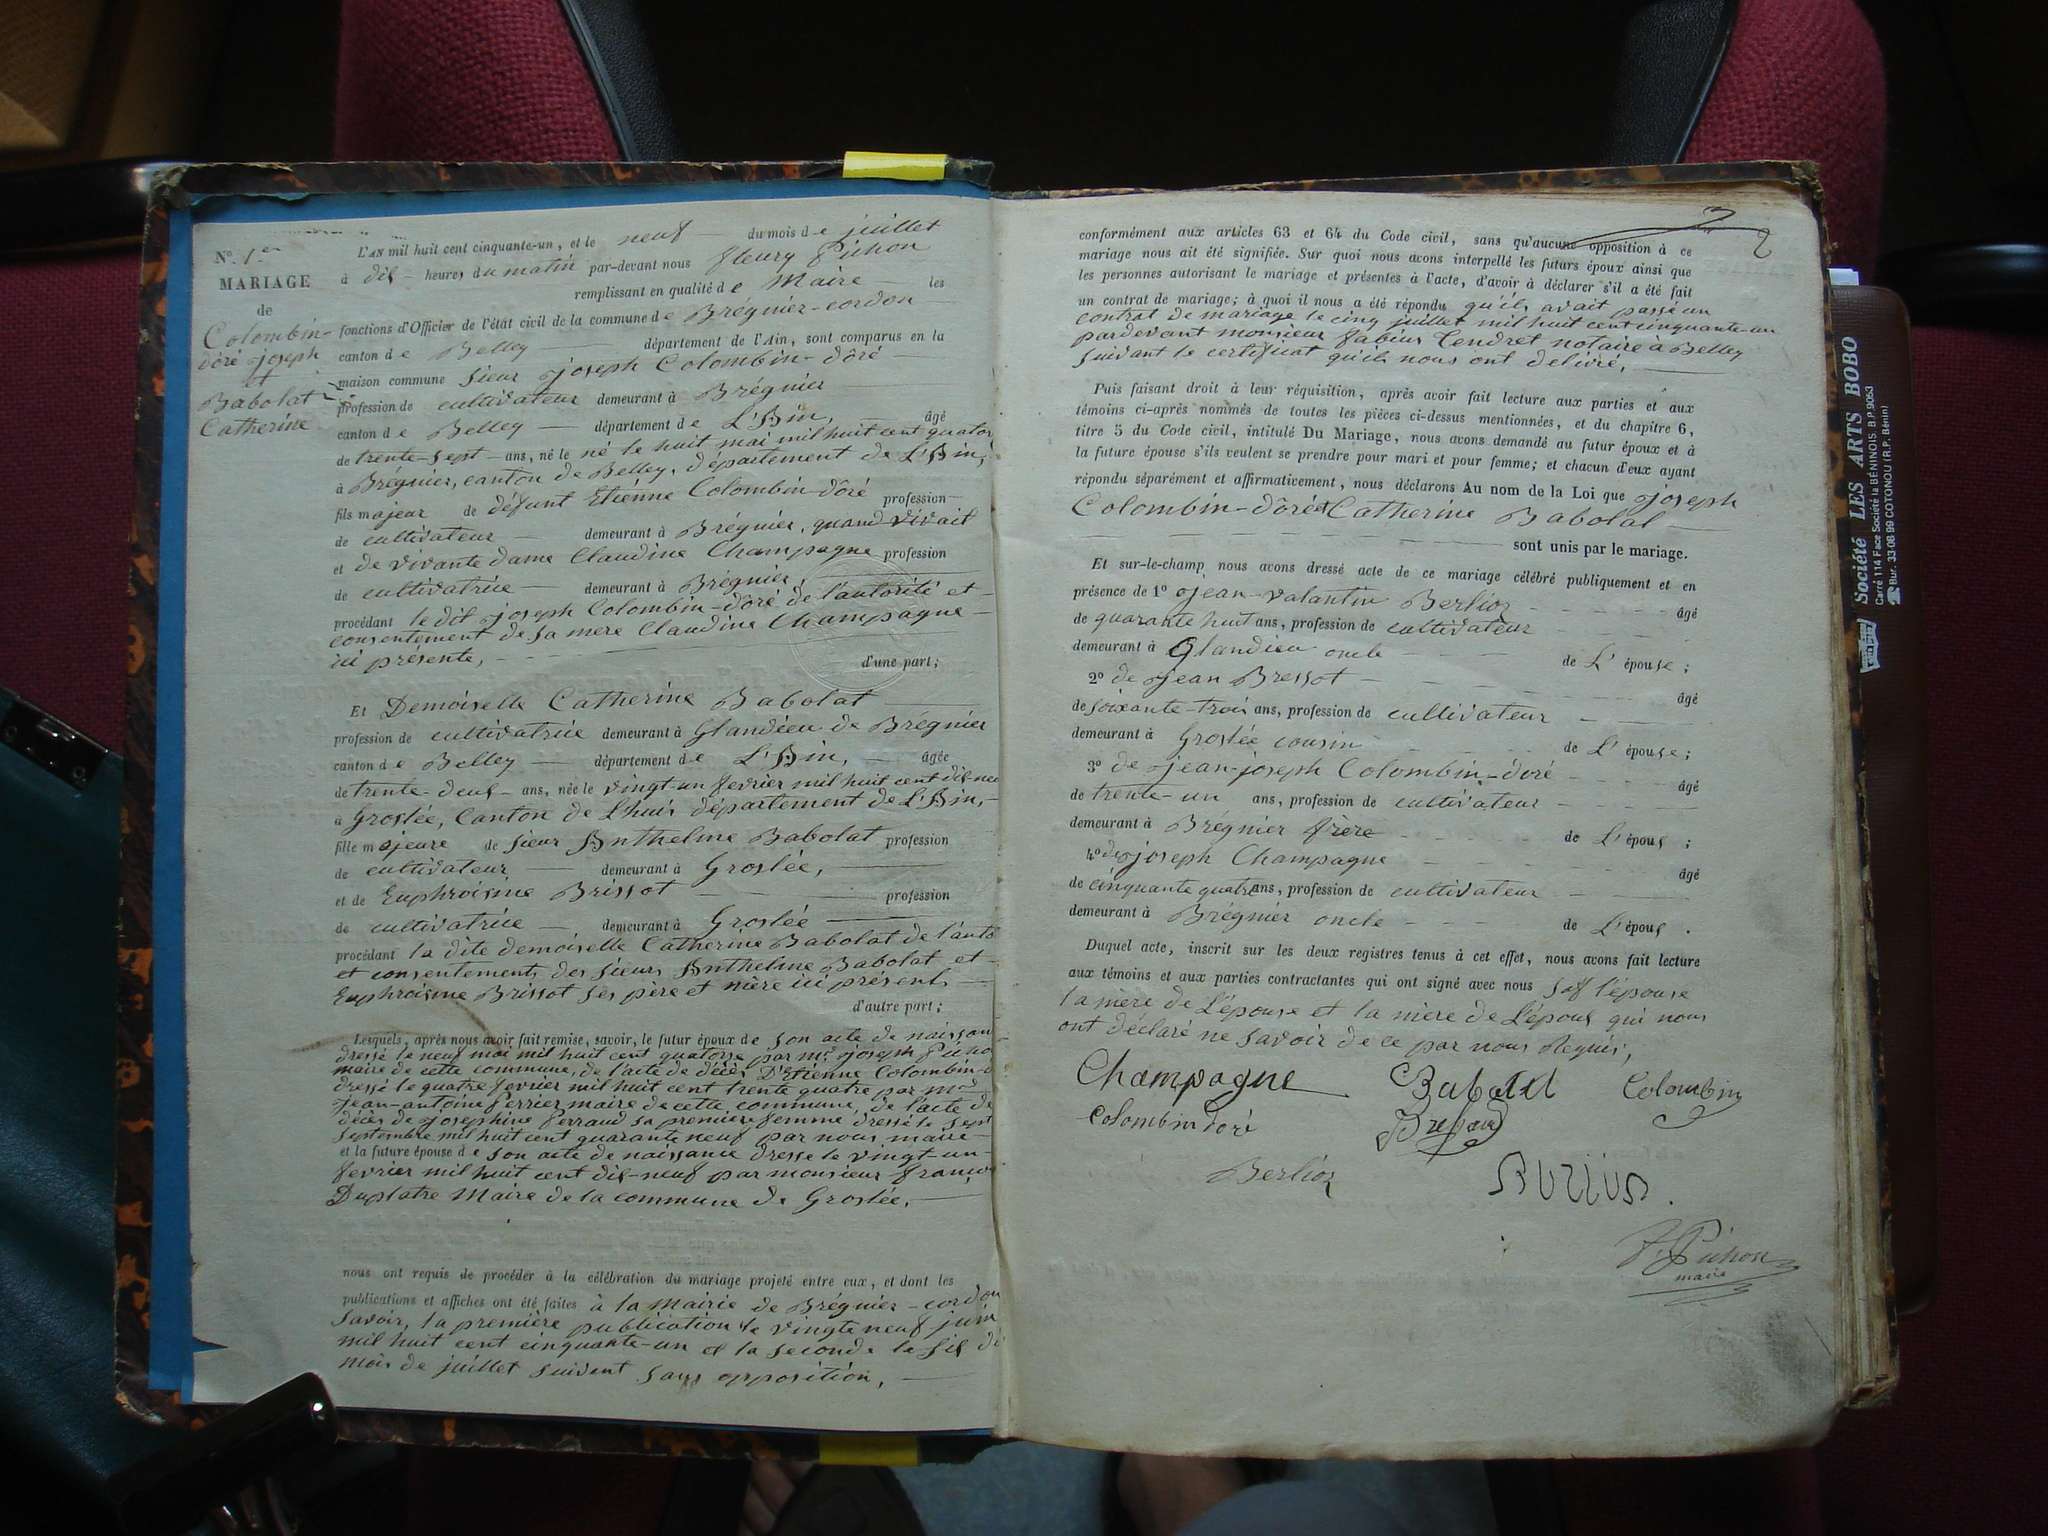 N.º 1.er
MARIAGE
de
Colombin-
dôré joseph
et
Babolat
Catherine
L'AN mil huit cent cinquante-un, et le neuf du mois de juillet
à dix heures du matin par-devant nous fleury Pichon
remplissant en qualité de Maire les
fonctions d'Officier de l'état civil de la commune de Brégnier-cordon
canton de Belley département de l'Ain, sont comparus en la
maison commune Sieur joseph Colombin-dôré
profession de cultivateur demeurant à Brégnier
canton de Belley département de L'Ain, âgé
de trente-sept ans, né le né le huit mai mil huit cent quator
à Brégnier, canton de Belley, département de L'Ain,
fils majeur de défunt Etiénne Colombin-dôré profession
de cultivateur demeurant à Brégnier, quand vivait
et de vivante dame Claudine Champagne profession
de cultivatrice demeurant à Brégnier
procédant le dit joseph Colombin-dôré de l'autorité et
consentement de sa mere Claudine Champagne
ici présente,
d'une part;
Et Demoiselle Catherine Babolat
profession de cultivatrice demeurant à Glandieu de Brégnier
canton de Belley département de L'Ain, âgée
de trente-deux ans, née le vingt-un fevrier mil huit cent dix-neu
à Groslée, Canton de Lhuis département de L'Ain,
fille majeure de sieur Anthelme Babolat profession
de cultivateur demeurant à Groslée,
et de Euphroisine Brissot profession
de cultivatrice demeurant à Groslée
procédant la dite demoiselle Catherine Babolat de l'auto
et consentement des sieurs Anthelme Babolat et
Euphroisine Brissot ses père et mère ici présents
d'autre part;
Lesquels, après nous avoir fait remise, savoir, le futur époux de son acte de naissan
dressé le neuf mai mil huit cent quatorse par mr joseph Picho
maire de cette commune, de l'acte de décès D'Etiénne Colombin-d
dressé le quatre fevrier mil huit cent trente quatre par mr
jean-antoine Perrier maire de cette commune, de l'acte de
décès de josephine ferraud sa première femme dressé le sept
septembre mil huit cent quarante neuf par nous maire
et la future épouse de son acte de naissance dressé le vingt-un
fevrier mil huit cent dix-neuf par monsieur françois
Duplatre Maire de la commune de Groslée,
nous ont requis de procéder à la célébration du mariage projeté entre eux, et dont les
publications et affiches ont été faites à la Mairie de Brégnier-cordon
savoir, la première publication le vingt neuf juin
mil huit cent cinquante-un et la seconde le six du
mois de juillet suivant sans opposition,
2
conformément aux articles 63 et 64 du Code civil, sans qu'aucune opposition à ce
mariage nous ait été signifiée. Sur quoi nous avons interpellé les futurs époux ainsi que
les personnes autorisant le mariage et présentes à l'acte, d'avoir à déclarer s'il a été fait
un contrat de mariage; à quoi il nous a été répondu qu'ils avait passé un
contrat de mariage le cinq juillet mil huit cent cinquante-un
pardevant monsieur fabius Tendret notaire à Belley
suivant le certificat qu'ils nous ont delivré,
Puis faisant droit à leur réquisition, après avoir fait lecture aux parties et aux
témoins ci-après nommés de toutes les pièces ci-dessus mentionnées, et du chapitre 6,
titre 5 du Code civil, intitulé Du Mariage, nous avons demandé au futur époux et à
la future épouse s'ils veulent se prendre pour mari et pour femme; et chacun d'eux ayant
répondu séparément et affirmativement, nous déclarons Au nom de la Loi que joseph
Colombin-dôré et Catherine Babolat
sont unis par le mariage.
Et sur-le-champ nous avons dressé acte de ce mariage célébré publiquement et en
présence de 1º jean-valantin Berlioz âgé
de quarante huit ans, profession de cultivateur
demeurant à Glandieu oncle de L'épouse;
2º de jean Bressot âgé
de soixante-trois ans, profession de cultivateur
demeurant à Groslée cousin de L'épouse;
3º de jean-joseph Colombin-doré âgé
de trente-un ans, profession de cultivateur
demeurant à Brégnier frère de L'époux;
4º de joseph Champagne âgé
de cinquante quatre ans, profession de cultivateur
demeurant à Brégnier oncle de L'époux.
Duquel acte, inscrit sur les deux registres tenus à cet effet, nous avons fait lecture
aux témoins et aux parties contractantes qui ont signé avec nous sof l'épouse
la mère de L'épouse et la mère de L'époux qui nous
ont déclaré ne savoir de ce par nous Requis,
Champagne Babolat Colombin
Colombin doré
Berlioz
F. Pichon
maire
Société LES ARTS BOBO
Carré 114 Face Société la BÉNINOIS. B.P. 9053
Bur. 33 08 99 COTONOU (R.P. Bénin)